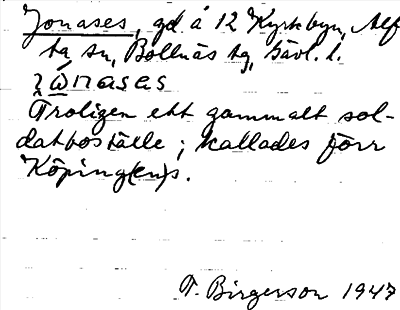 Jonases, gd å 12 Kyrkbyn, Alf
ta sn, Bollnäs tg, Gävl. l.
Troligen ett gammalt sol-
datboställe; kallades förr
Köping(en)s.
T. Birgerson 1947